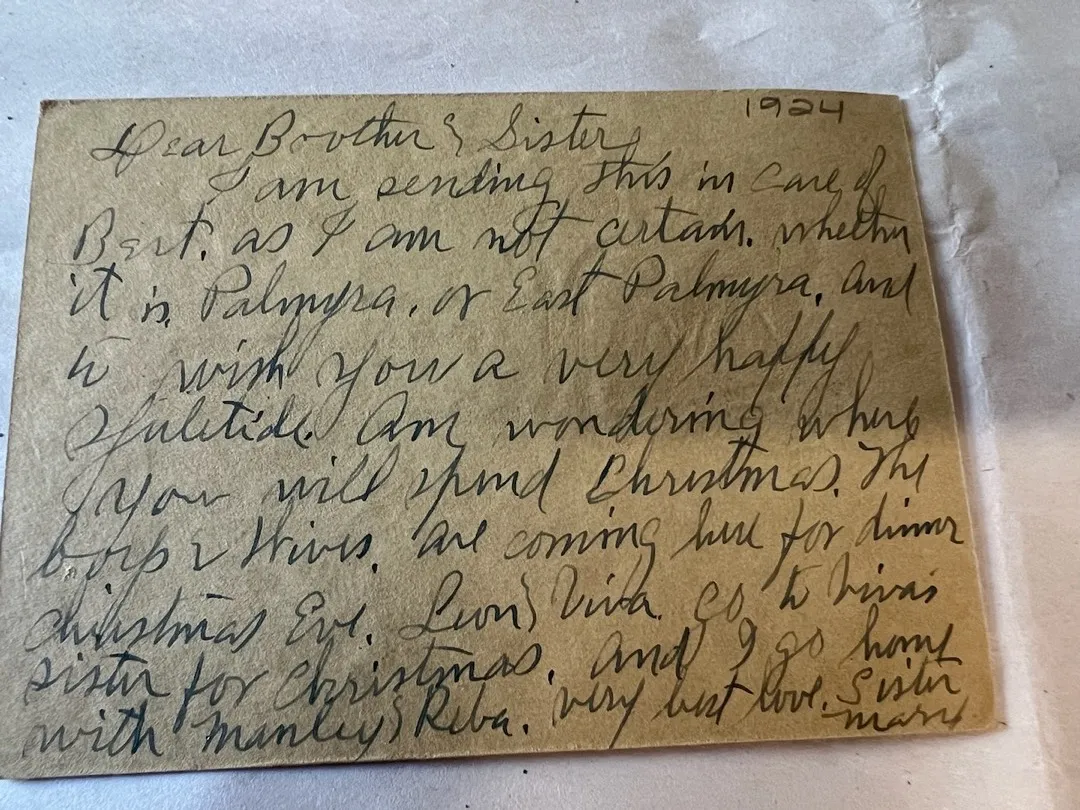 1924
Dear Brother & Sister,
I am sending this in care of
Bert. as I am not certain. whether
it is Palmyra. or East Palmyra. And
to wish you a very happy
Yuletide. Am wondering where
you will spend Christmas. The
boys & Wives. are coming here for dinner
Christmas Eve. Leon & Viva go to Viva's
sister for Christmas. And I go home
with Manley & Reba. very best love. Sister
Mary